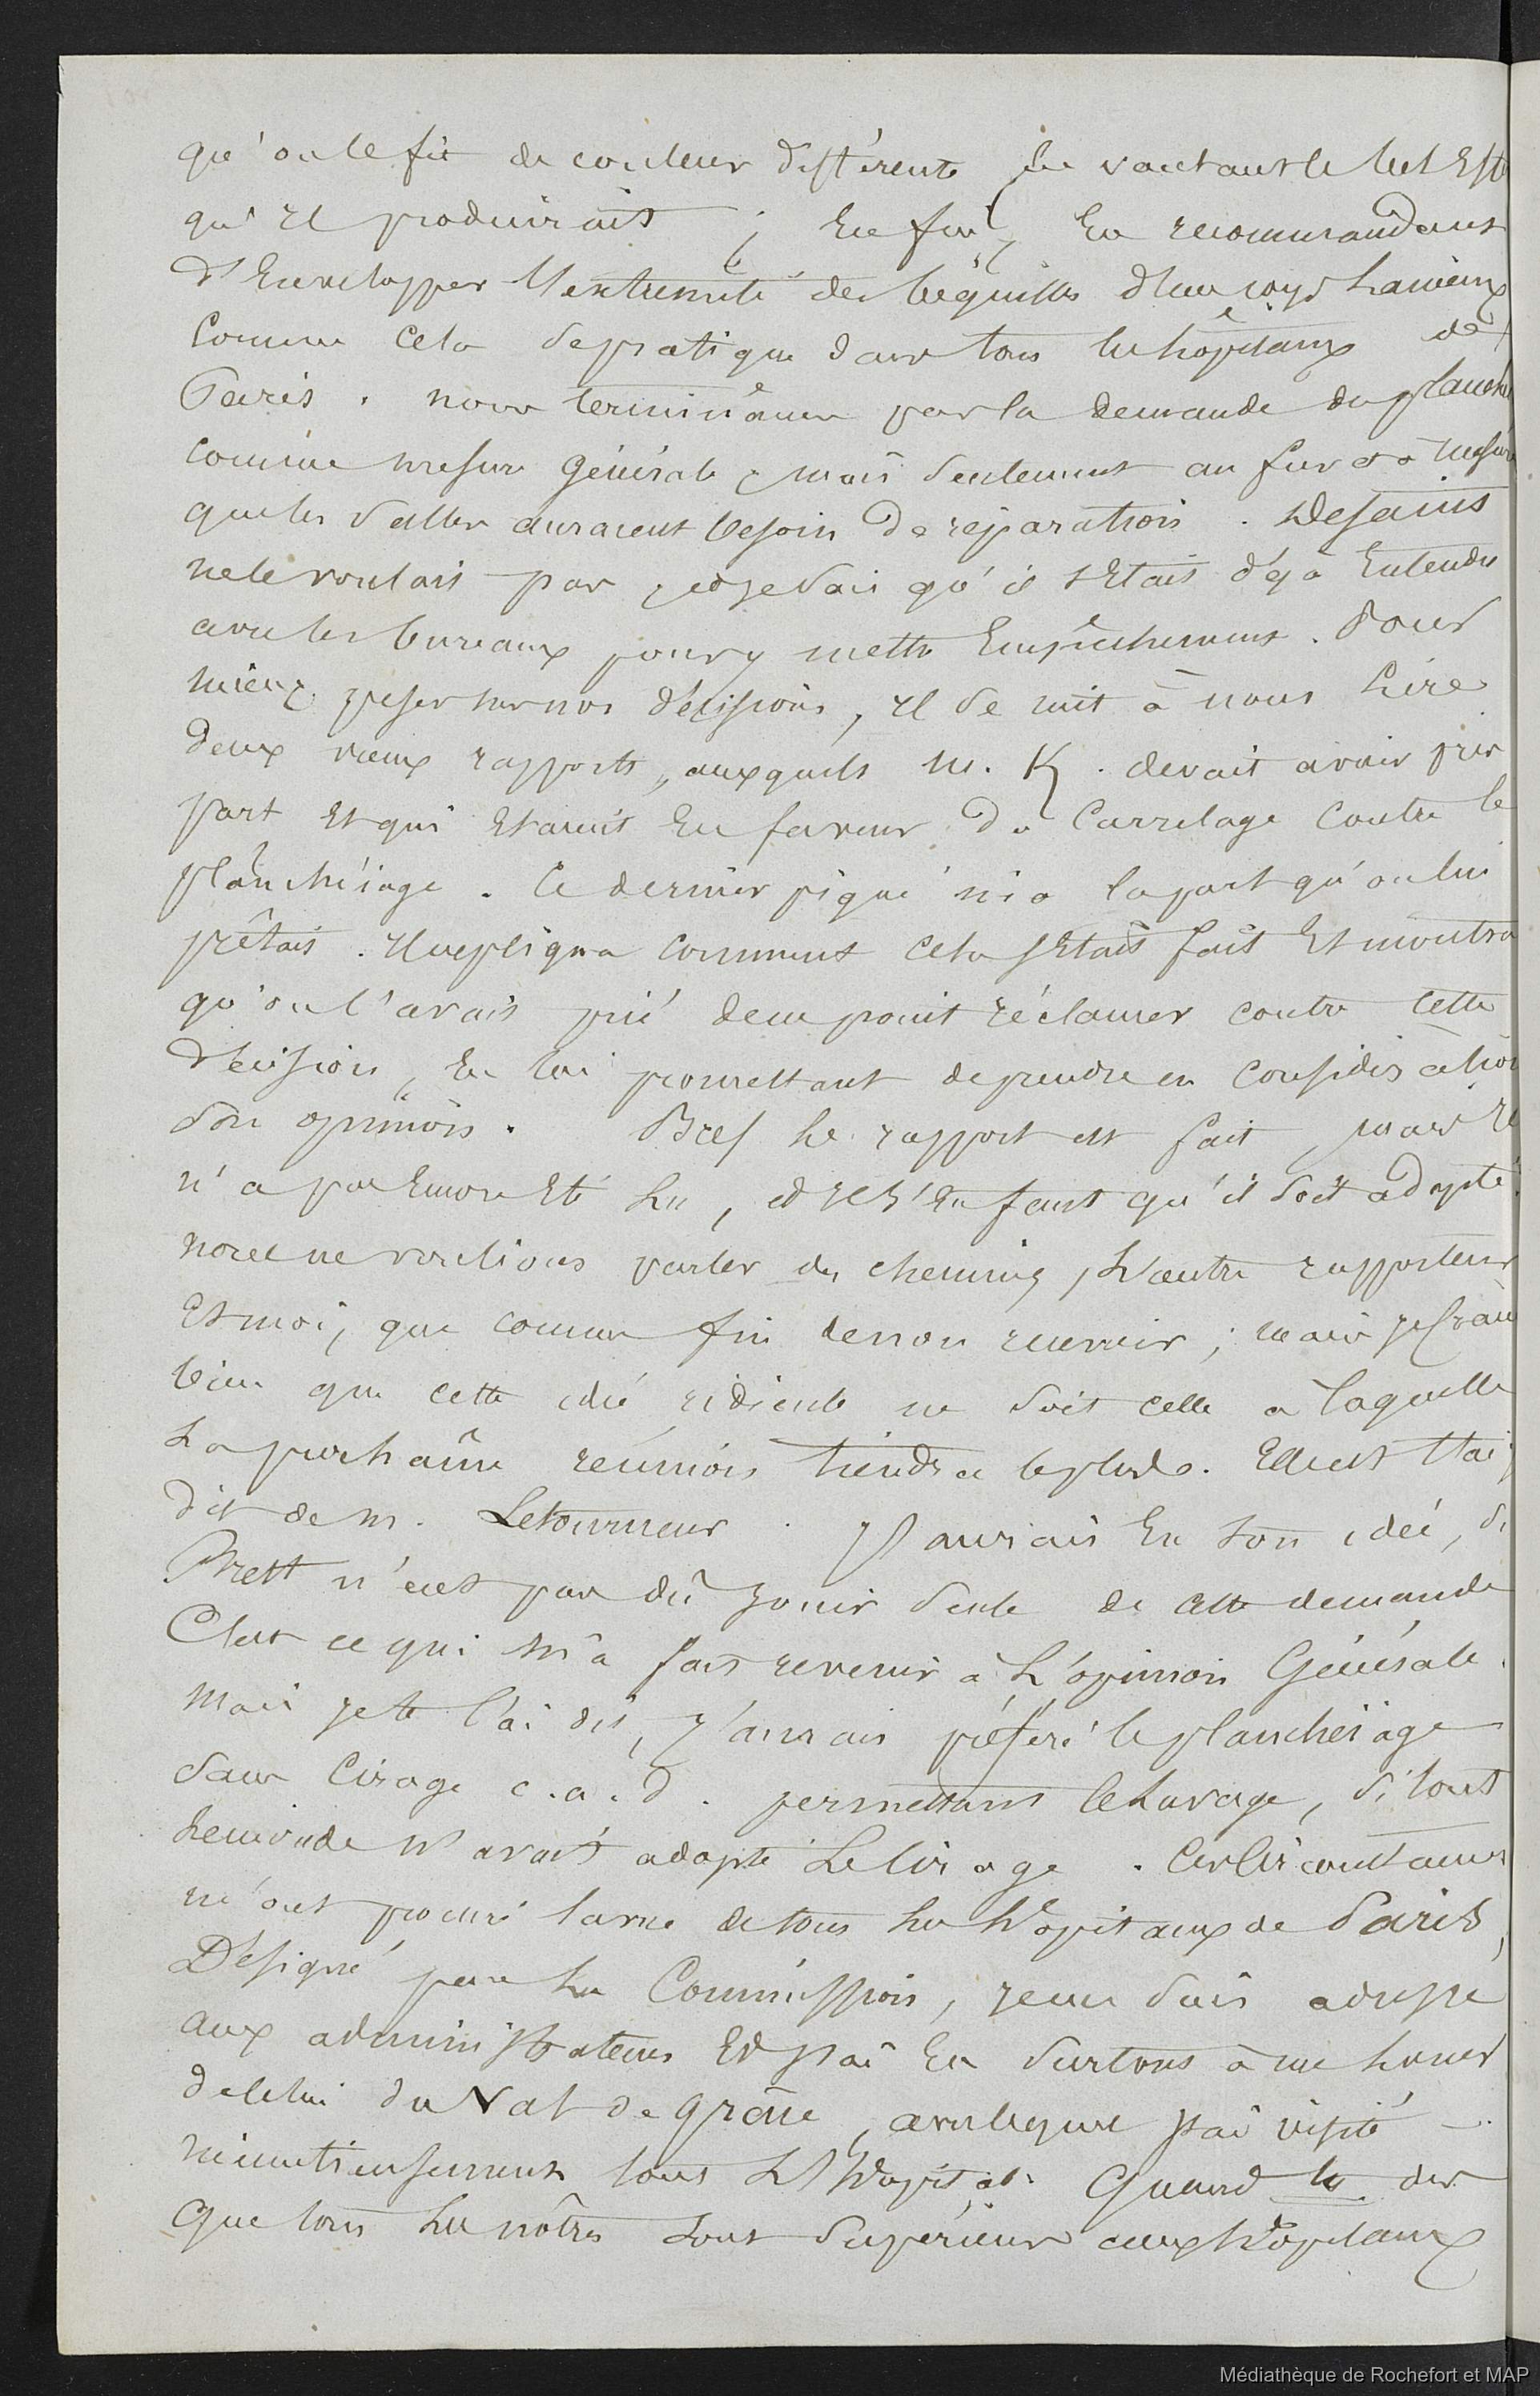 qu'on le fit de couleur différente en vantant le bel Eff
qu'Il produirait ; Enfin, En recommandant
d'Envelopper l'extremité des béquilles d'un corps Laineux
Comme Cela se pratique dans tous les hôpitaux de
Paris. nous terminâmes par la demande du planche
comme mesure Générale, mais seulement au fur et à mesure
que les salles auraient besoin de réparation. Desains
ne le voulait pas, et je sais qu'il s'Etait déjà Entendu
avec les bureaux pour y mettre Empêchement. Pour
mieux peser sur nos décisions, Il se mit à nous Lire
deux vieux rapports, auxquels M. K. devait avoir pris
part Et qui Etaient En faveur du Carrelage Contre le
planchéiage. Ce dernier piqué nia la part qu'on lui
prêtait. Il expliqua comment cela s'Etait fait Et montra
qu'on l'avait prié de ne point réclamer contre cette
décision, En lui promettant de prendre en considération
son opinion. Bref le rapport est fait, mais Il
n'a pas Encore Eté Lu, et Il s'En faut qu'il soit adopté.
nous ne voulions parler des chemins, L'autre rapporteur
Et moi, que comme fin de non recevoir ; mais je crains
bien que cette idée ridicule ne soit celle à laquelle
La prochaine réunion tiendra le plus. Elle est
dit de M. Letourneur. J'aurais Eu son idée, si
Brest n'eut pas dû jouir seule de cette demande
C'est ce qui m'a fait revenir à L'opinion Générale.
Mais je te l'ai dit, j'aurais préféré le planchéiage
sans Cirage c.a.d. permettant le Lavage, si tout
Le monde n'avait adopté Le Cirage. Ces Circonstances
m'ont procuré la vue de tous les hôpitaux de Paris,
Désigné par La Commission, je me suis adressé
aux administrateurs Et j'ai Eu surtout à me Louer
de celui du Val de grâce, avec lequel j'ai visité
minutieusement tout L'hôpital. Quand tu dis
Que tous Les nôtres sont supérieurs aux hôpitaux
Médiathèque de Rochefort et MAP